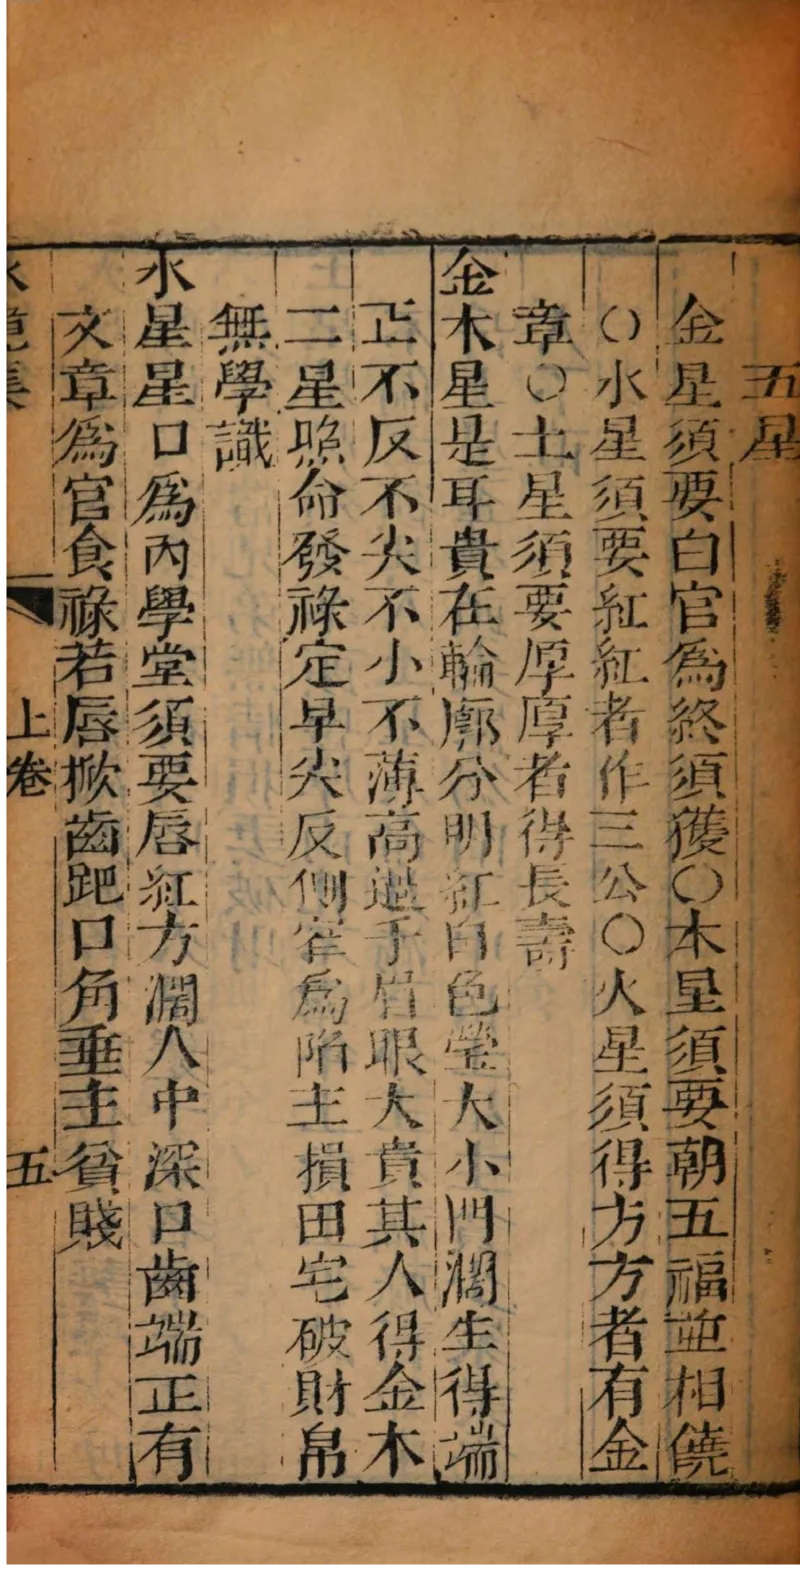 五星
金星須要白官爲終須獲○木星須要朝五福並相饒
○水星須要紅紅者作三公○火星須得方方者有金
章○土星須要厚厚者得長壽
金木星是耳貴在輪廓分明紅白色瑩大小門濶生得端
正不反不尖不小不薄高過于眉眼大貴其人得金木
二星照命發祿定早尖反側窄爲陷主損田宅破財帛
無學識
水星星口爲内學堂須要唇紅方濶人中深口齒端正有
文章爲官食祿若唇掀齒跁口角垂主貧賤
水鏡集
上卷
五